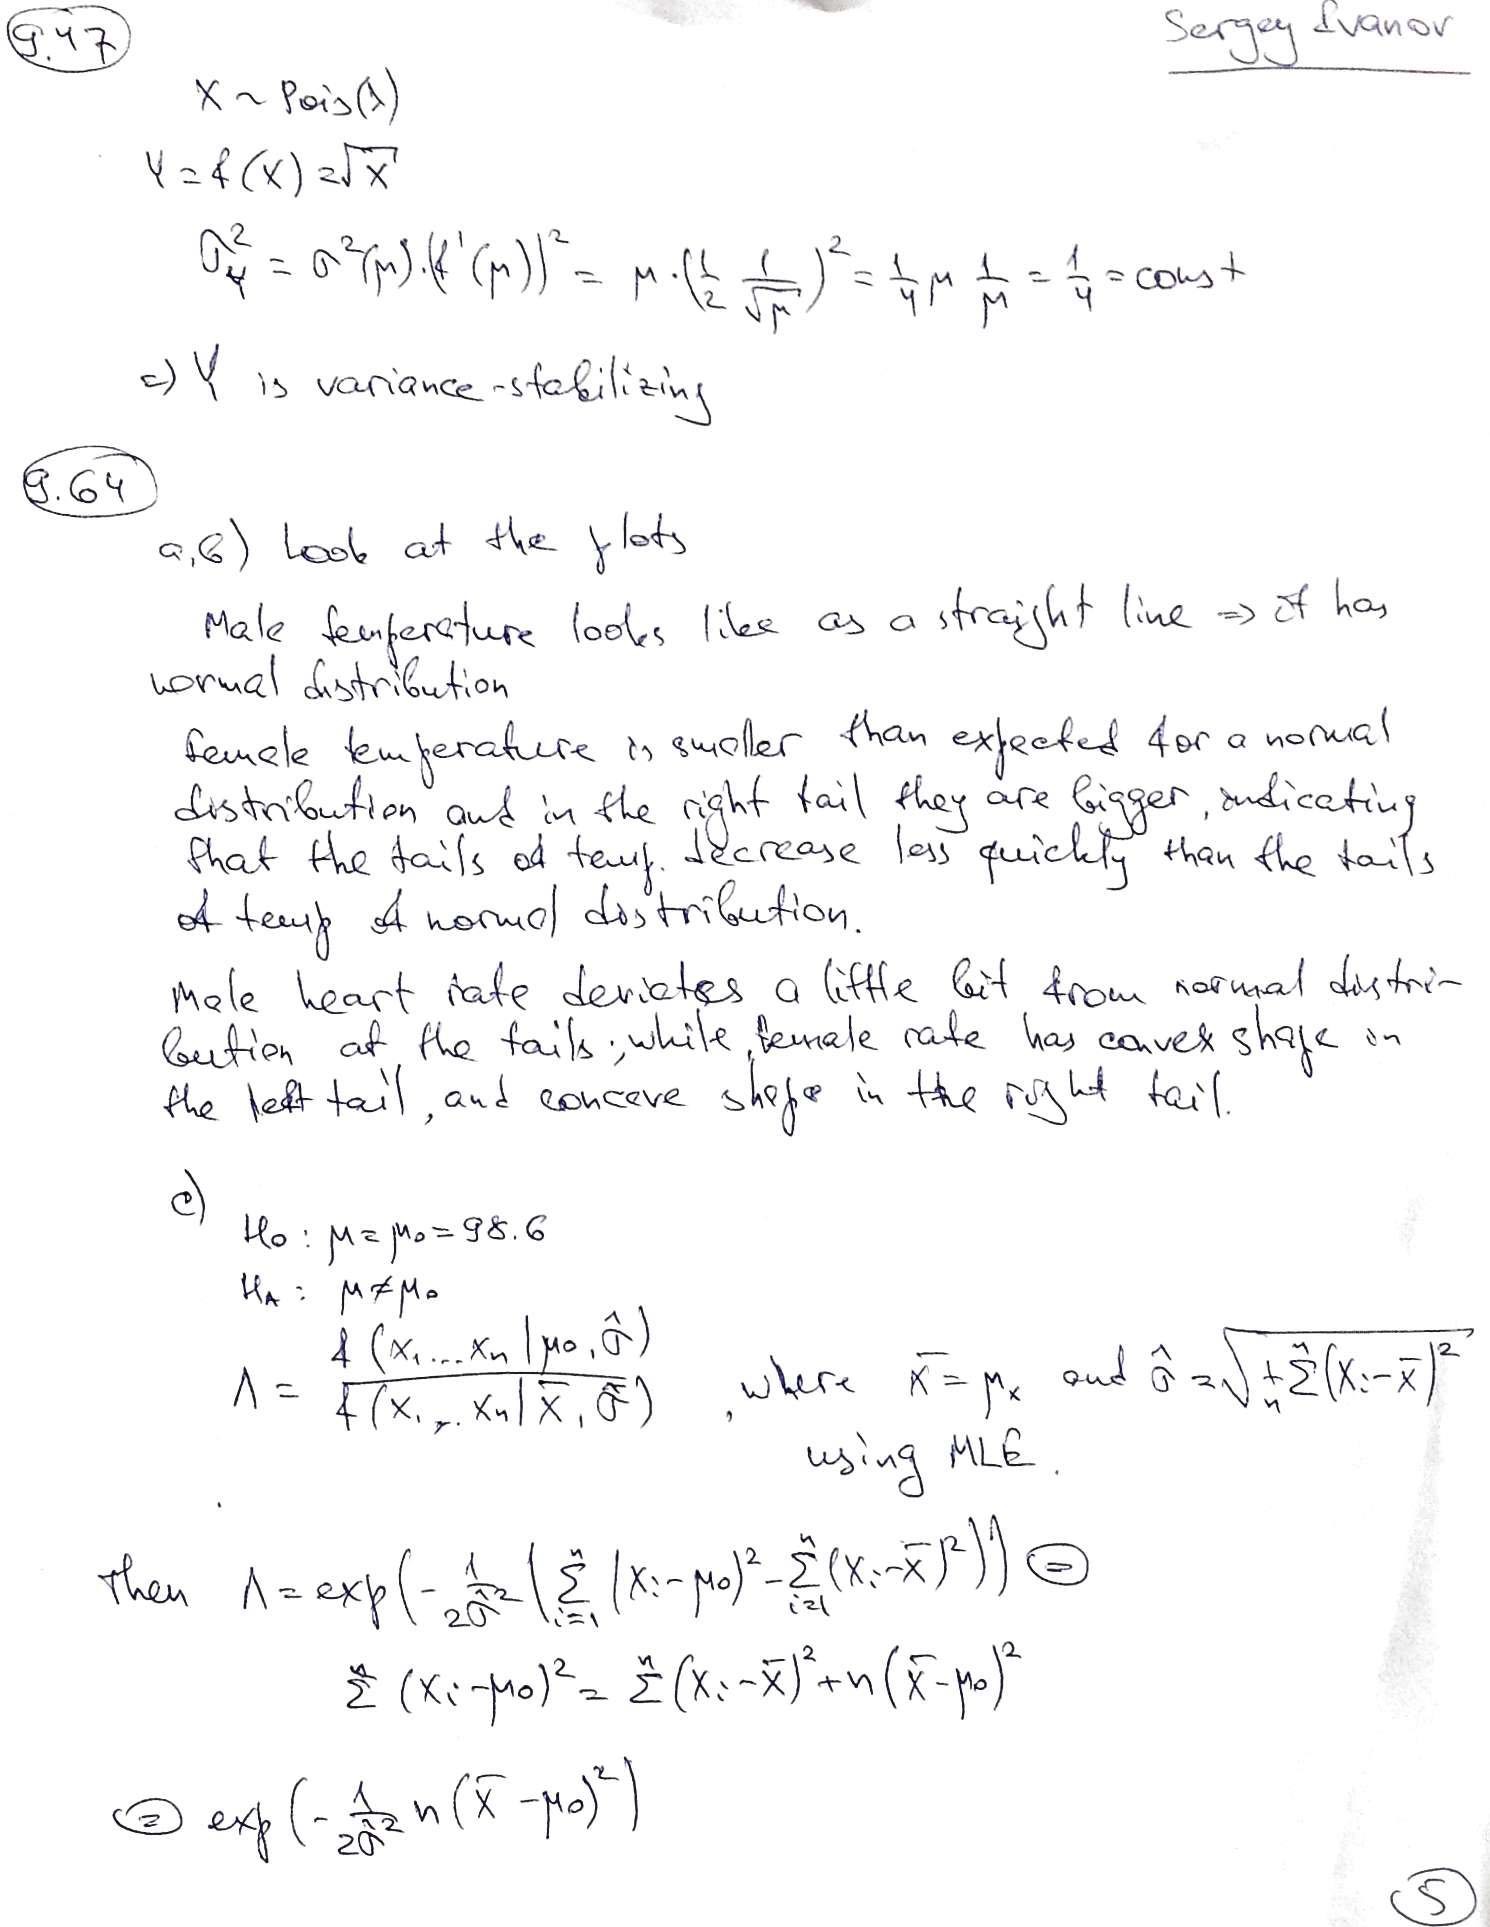 9.47
Sergey Ivanov
X ~ Pois(λ)
Y = f(X) = √X
σ_Y² = σ²(μ)·(f'(μ))² = μ·(1/2 1/√μ)² = 1/4 μ 1/μ = 1/4 = const
=> Y is variance-stabilizing
9.64
a,b) Look at the plots
Male temperature looks like as a straight line => it has
normal distribution
female temperature is smaller than expected for a normal
distribution and in the right tail they are bigger, indicating
that the tails of temp. decrease less quickly than the tails
of temp of normal distribution.
Male heart rate deviates a little bit from normal distri-
bution at the tails; while, female rate has convex shape in
the left tail, and concave shape in the right tail.
c)
H₀ : μ = μ₀ = 98.6
H_A : μ ≠ μ₀
Λ = f(x₁...xₙ | μ₀, σ̂) / f(x₁...xₙ | x̄, σ̂) , where x̄ = μₓ and σ̂ = √(1/n Σⁿ(Xᵢ-x̄)²)
using MLE.
Then Λ = exp(-1/2σ̂² (Σⁿᵢ₌₁ (Xᵢ-μ₀)² - Σⁿᵢ₌₁ (Xᵢ-x̄)²)) =
Σⁿ (Xᵢ-μ₀)² = Σⁿ (Xᵢ-x̄)² + n(x̄-μ₀)²
= exp(-1/2σ̂² n(x̄-μ₀)²)
5